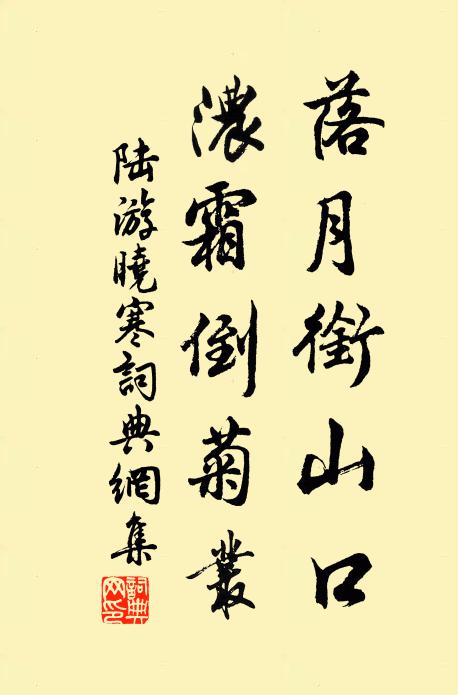 落月銜山口
濃霜倒菊叢
陸游曉寒詞典網集
詞典網印